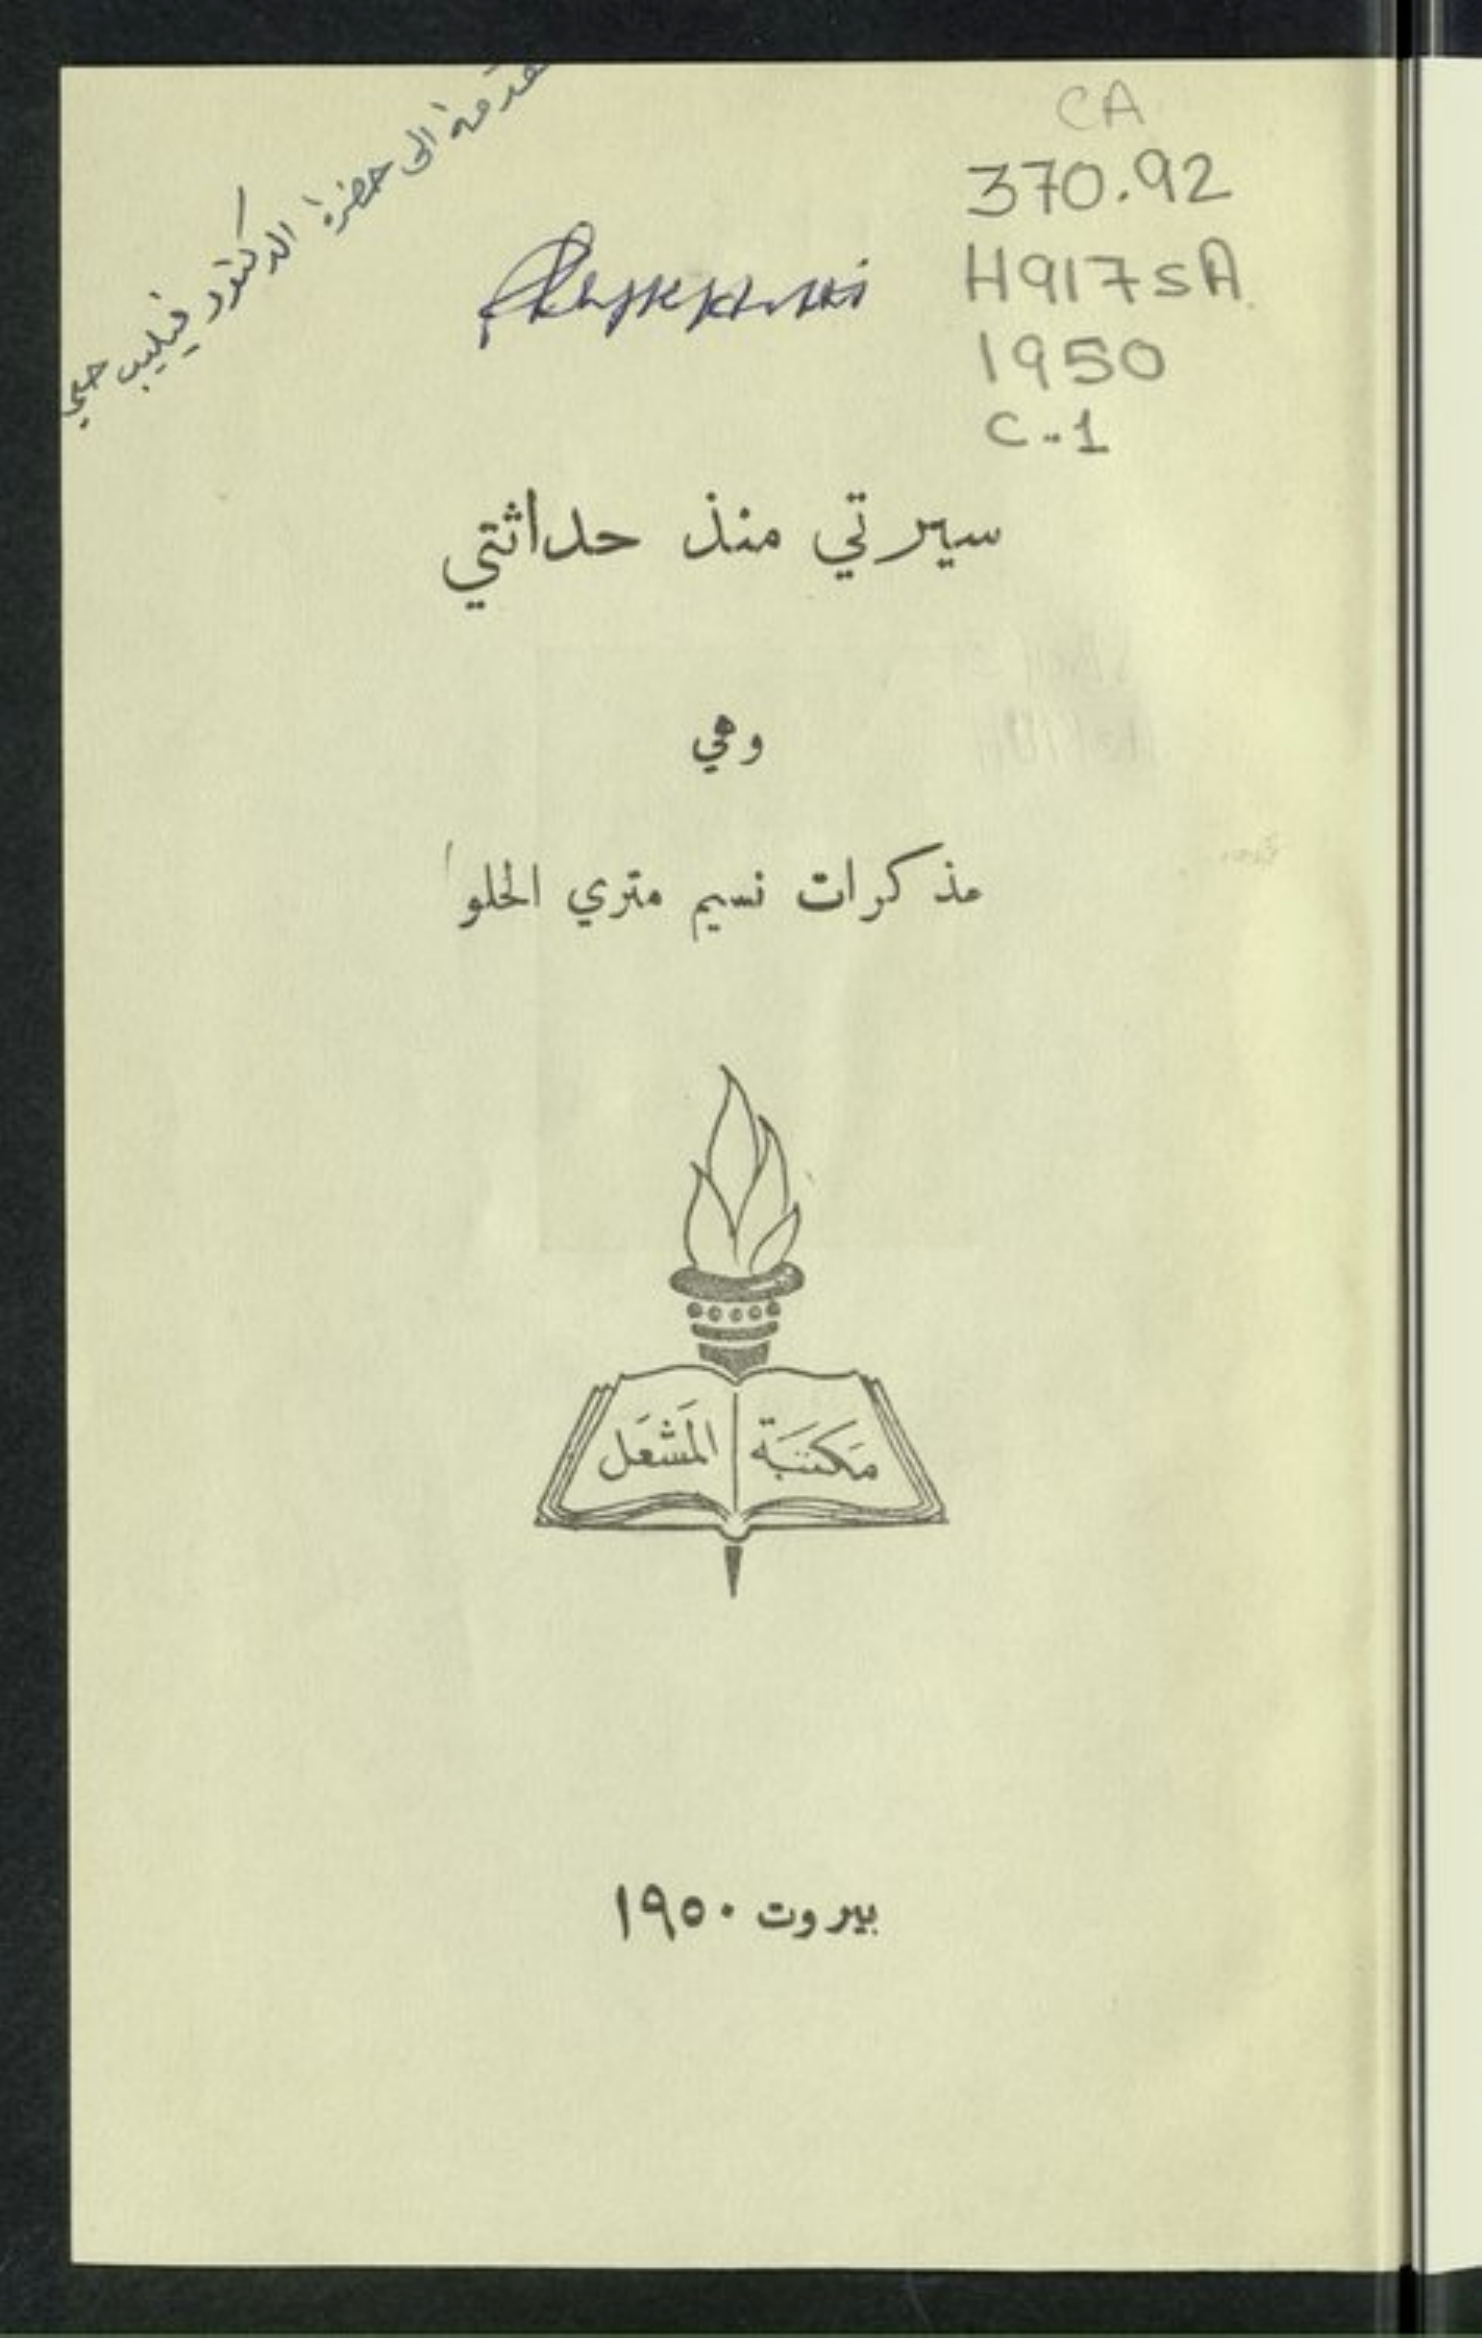 تقدمة الى حضرة الدكتور فيليب حتي
CA
370.92
H917sA
1950
C.1
سيرتي منذ حداثتي
وهي
مذكرات نسيم متري الحلو
مكتبة المشعل
بيروت ١٩٥٠